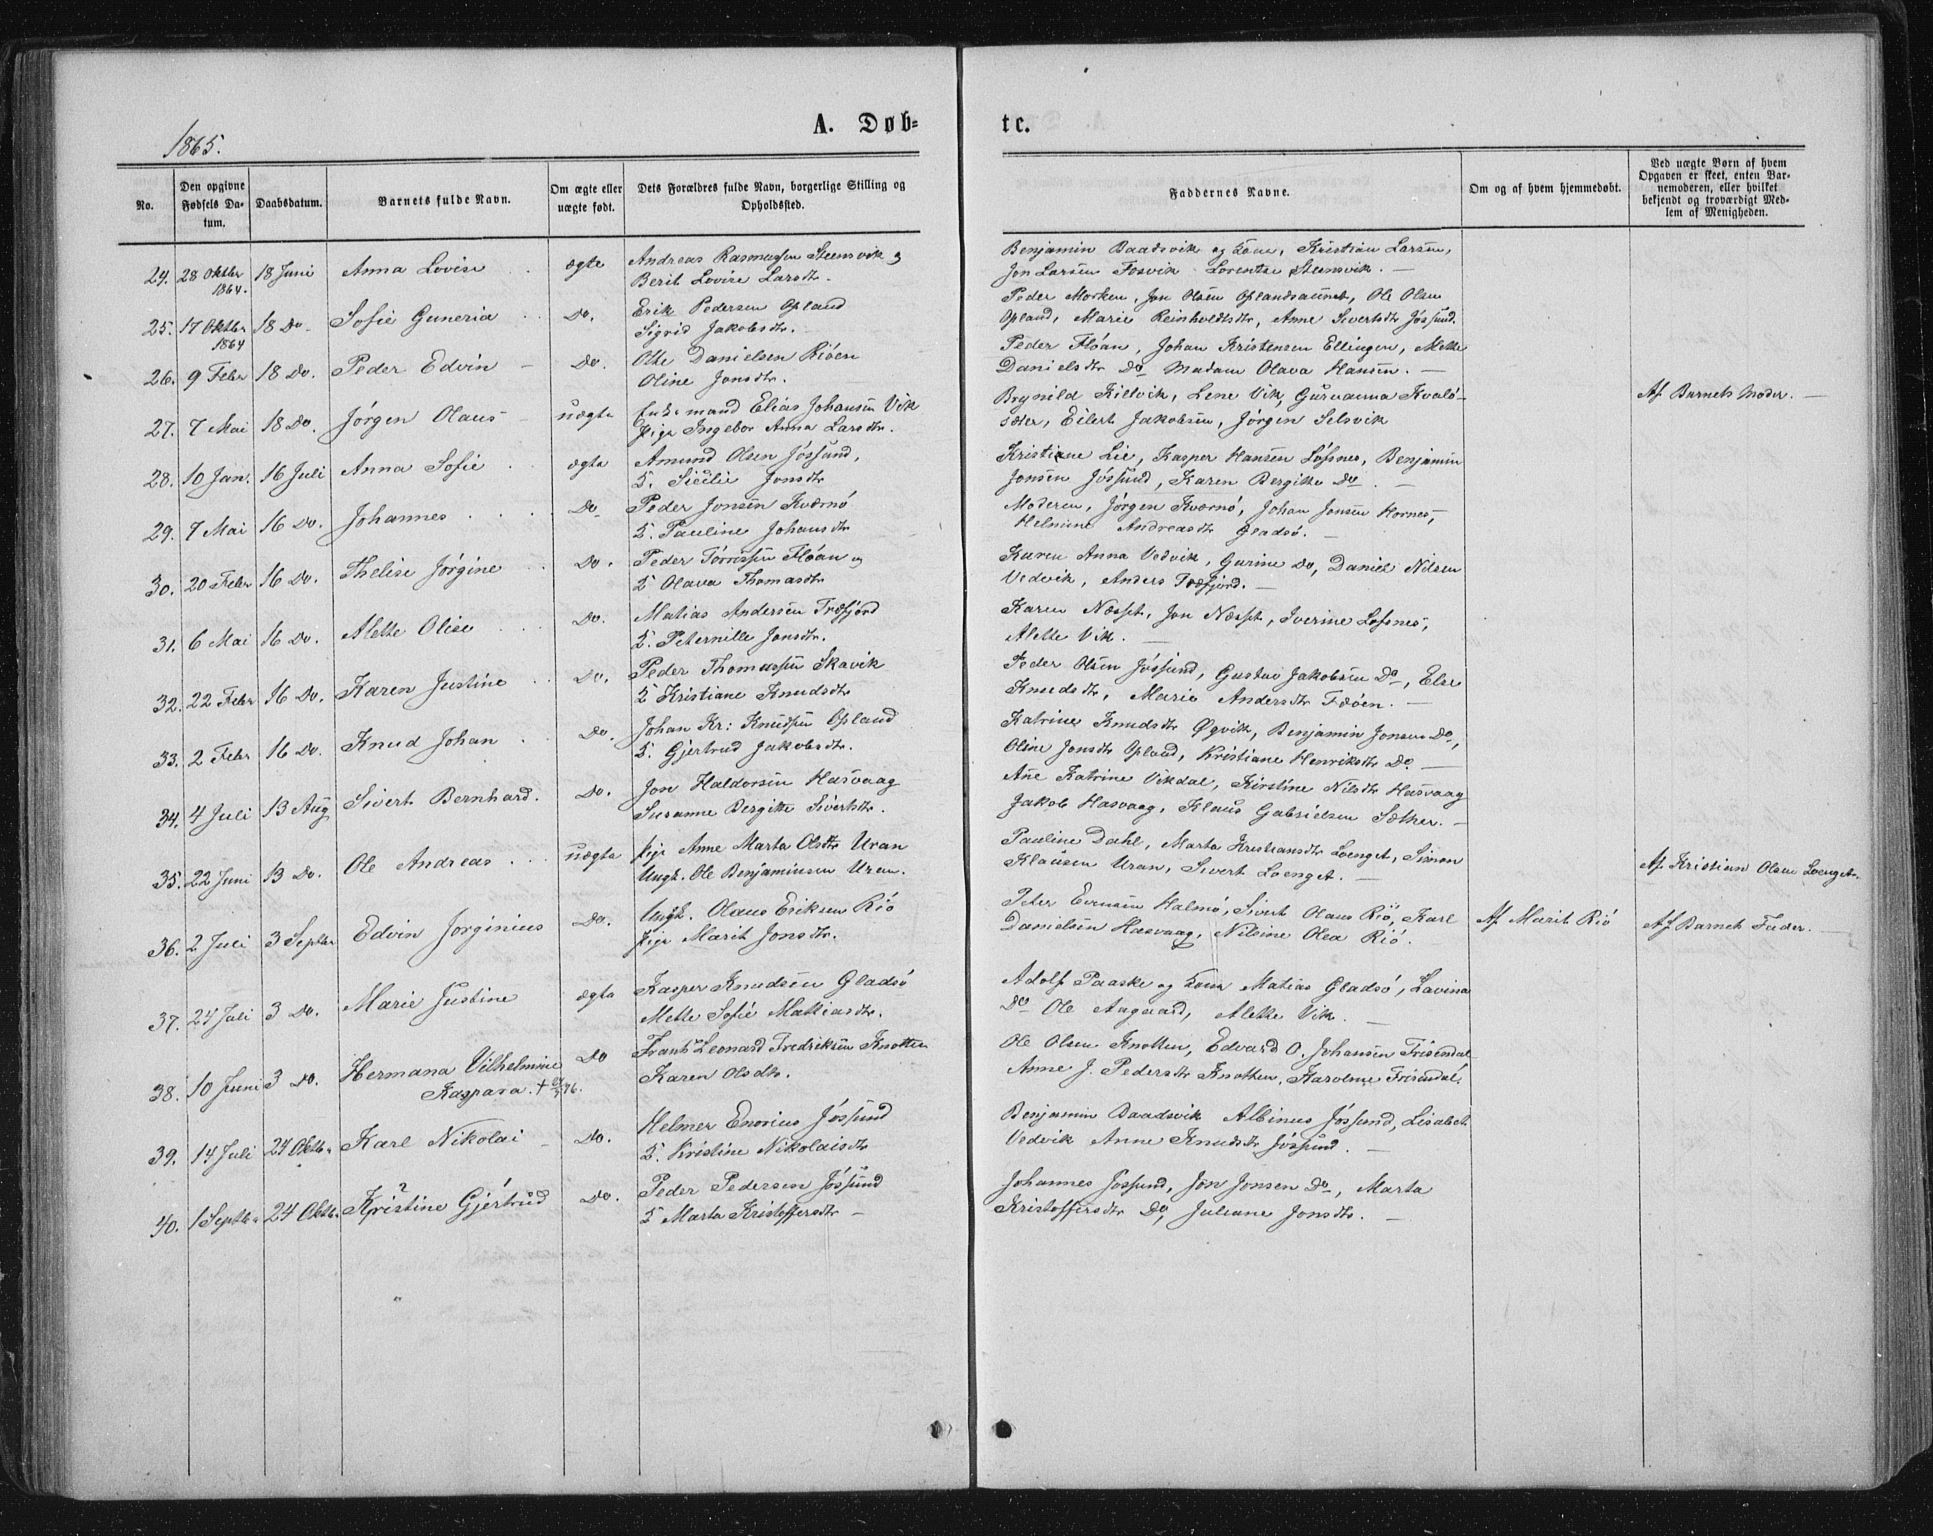 1865.
A. Døb-
te.
No.
Den opgivne Fødsels Datum.
Daabsdatum.
Barnets fulde Navn.
Om ægte eller uægte født.
Dets Forældres fulde Navn, borgerlige Stilling og Opholdssted.
Faddernes Navne.
Om og af hvem hjemmedøbt.
Ved uægte Børn af hvem Opgaven er skeet, enten Barnemoderen, eller hvilket bekjendt og troværdigt Medlem af Menigheden.
24. 28 Oktbr 1864. 18 Juni Anna Lovise ægte Andreas Rasmussen Steensvik og
Berit Lovise Larsdtr.
Benjamin Baadsvik og Kone, Kristian Larsen,
Jon Larsen Fosvik Lorentse Steensvik. —
25. 17 Oktbr 1864 18 Do. Sofie Guneria Do. Erik Pedersen Opland
Sigrid Jakobsdtr.
Peder Morken, Jon Olsen Oplandsaunet, Ole Olsen
Opland, Marie Reinholdtsdtr, Anne Sivertsdtr Jøssund.
26. 9 Febr 18 Do. Peder Edvin — Do. Otte Danielsen Riøen
Oline Jonsdtr.
Peder Floan, Johan Kristensen Ellingen, Mette
Danielsdtr Do Madam Olava Hansen. —
27. 7 Mai 18 Do. Jørgen Olaus — uægte Enkemand Elias Johansen Vik
Pige Ingebor Anna Larsdtr.
Brynild Killvik, Lene Vik, Gurvanna Kvalø-
sæter, Eilert Jakobsen, Jørgen Selsvik
Af Barnets Moder. —
28. 10 Jan. 16 Juli Anna Sofie ægte Amund Olsen Jøssund,
H. Sicilie Jonsdtr
Kristiane Lie, Kasper Hansen Løfsnes, Benjamin
Jonsen Jøssund, Karen Bergitte Do. —
29. 7 Mai 16 Do. Johannes Do Peder Jonsen Kværnø
H. Pauline Johansdtr
Moderen, Jørgen Kværnø, Johan Jonsen Hornes,
Andreasdtr Gladsø. —
30. 20 Febr 16 Do. Thelise Jørgine Do. Peder Torrissen Floan og
H Olava Thomasdtr
Karen Anna Vedvik, Gurine Do, Daniel Nilsen
Vedvik, Anders Træfjord. —
31. 6 Mai 16 Do. Alette Olise Do. Matias Andersen Træfjord
H. Peternille Jonsdtr.
Karen Næsset, Jon Næsset, Iverine Løfsnes,
Alette Vik. —
32. 22 Febr 16 Do. Karen Justine Do. Peder Thomassen Skavik
H Kristiane Knudsdtr
Peder Olsen Jøssund, Gustav Jakobsen Do, Else
Knudsdtr, Marie Andersdtr —
33. 2 Febr 16 Do. Knud Johan Do. Johan Kr: Knudsen Opland
H. Gjertrud Jakobsdtr.
Katrine Knudsdtr Øgvik, Benjamin Jonsen Do,
Oline Jonsdtr Opland, Kristiane Henriksdtr Do —
34. 4 Juli 13 Aug Sivert Bernhard. Do. Jon Haldorsen Hasvaag
Susanne Bergitte Sivertsdtr.
Ane Katrine Vikdal, Kirstine Nilsdtr Hasvaag
Jakob Hasvaag, Klaus Gabrielsen Sæther. —
35. 22 Juni 13 Do. Ole Andreas uægte Pige Anne Marta Olsdtr Uran
Ungk. Ole Benjaminsen Uran.
Pauline Dahl, Marta Kristiansdtr Loenget, Simon
Klausen Uran, Sivert Loenget. —
Af Kristian Olsen Loenget.
36. 2 Juli 3 Septbr Edvin Jørginius Do. Ungk. Olaus Eriksen Riø
Pige Marit Jonsdtr.
Peter Evensen Halmø, Sivert Olaus Riø, Karl
Danielsen Hasvaag, Nilsine Olea Riø.
Af Marit Riø
Af Barnets Fader. —
37. 24 Juli 3 Do. Marie Justine ægte Kasper Knudsen Gladsø
Mette Sofie Mathiasdtr.
Adolf Paaske og Kone Matias Gladsø, Lavina
Do Ole Aagaard, Alette Vik. —
38. 10 Juni 3 Do. Hermana Vilhelmine
Kaspara. + Do Frants Leonard Fredriksen Knotten
Karen Olsdtr.
Ole Olsen Knotten, Edvard O. Johansen Frisendal
Anne J. Pedersdtr Knotten, Karoline Frisendal.
39. 14 Juli 24 Oktbr Karl Nikolai — Do. Helmer Enorius Jøssund
H. Kristine Nikolaisdtr
Benjamin Baadsvik Albinus Jøssund, Lisabet
Vedvik Anne Knudsdtr Jøssund. —
40. 1 Septbr 24 Oktbr Kristine Gjertrud Do. Peder Pedersen Jøssund
H Marta Kristoffersdtr —
Johannes Jossund, Jon Jonsen Do, Marta
Kristoffersdtr Do, Juliane Jonsdtr. —